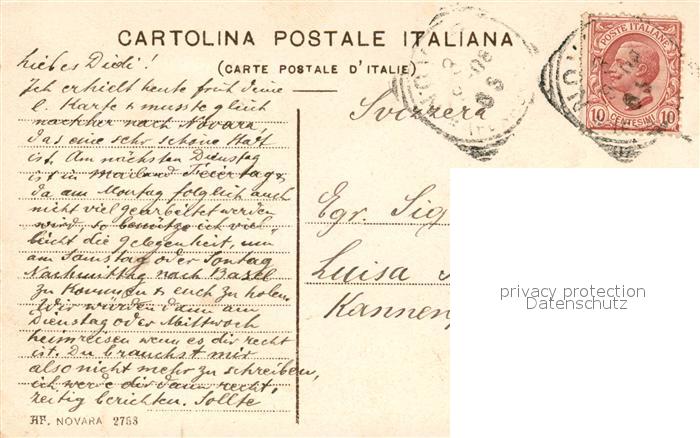 CARTOLINA POSTALE ITALIANA
(CARTE POSTALE D'ITALIE)
Liebes Didi!
Ich erhielt heute früh deine
l. Karte & musste gleich
nachher nach Novara
das eine sehr schöne Stadt
ist. Am nächsten Dienstag
ist in Mailand Feiertag &
da am Montag folglich auch
nicht viel gearbeitet werden
wird, so benütze ich viel,
leicht die Gelegenheit, um
am Samstag oder Sonntag
Nachmittag nach Basel
zu kommen & euch zu holen.
Wir würden dann am
Dienstag oder Mittwoch
heimreisen wenn es dir recht
ist. Du brauchst mir
also nicht mehr zu schreiben,
ich werde dir dann recht,
zeitig berichten. Sollte
HF. NOVARA 2753
POSTE ITALIANE
10 CENTESIMI 10
Svizzera
Egr. Sig
Luisa
Kannen
privacy protection
Datenschutz